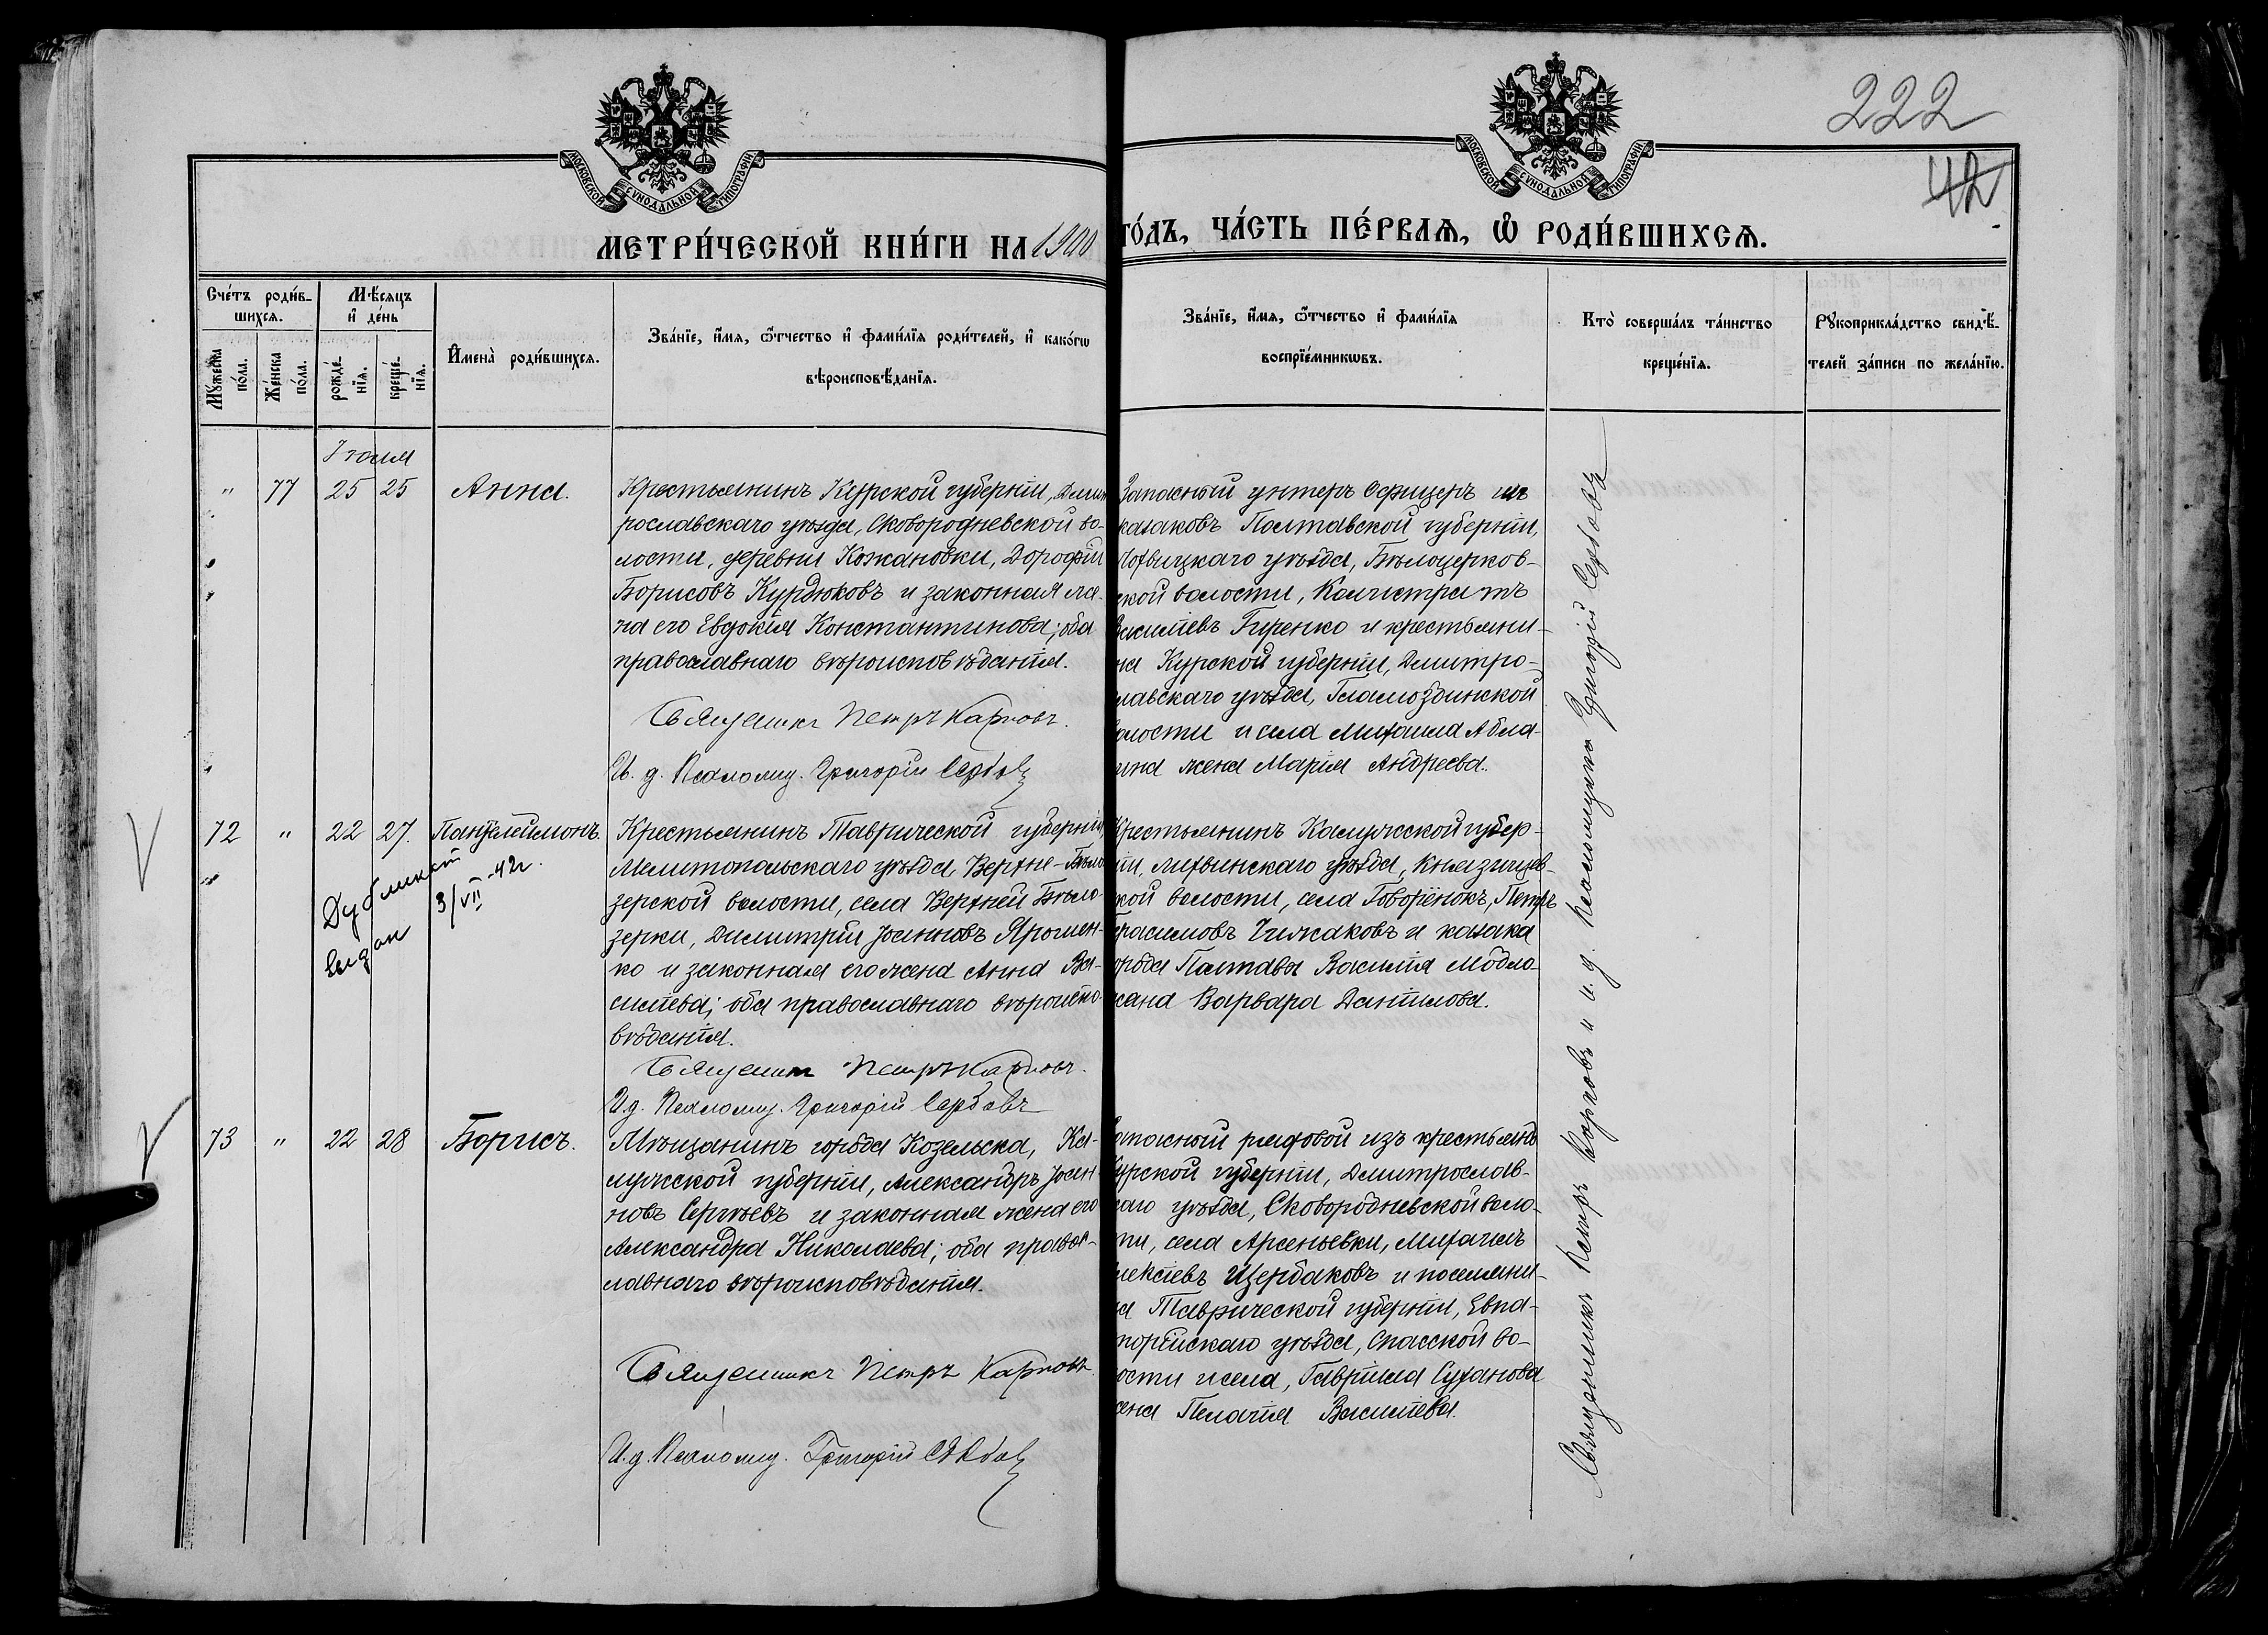 222
42
МОСКОВСКОЙ СѴНОДАЛЬНОЙ ТИПОГРАФІИ
МОСКОВСКОЙ СѴНОДАЛЬНОЙ ТИПОГРАФІИ
МЕТРИ́ЧЕСКОЙ КНИ́ГИ НА 1900
ГО́ДЪ, ЧА́СТЬ ПЕ́РВАѦ, Ѡ҆ РОДИ́ВШИХСѦ.
Сче́тъ роди́в-
шихсѧ.
Мѣ́сѧцъ
и҆ де́нь
Мꙋ́жеска
по́ла.
Же́нска
по́ла.
рожде́-
нїѧ.
креще́-
нїѧ.
И҆мена̀ роди́вшихсѧ.
Зва́нїе, и҆́мѧ, ѻ҆́тчество и҆ фами́лїѧ роди́телей, и҆ како́гѡ
вѣроисповѣ́данїѧ.
Зва́нїе, и҆́мѧ, ѻ҆́тчество и҆ фами́лїѧ
воспрїе́мникѡвъ.
Кто̀ соверша́лъ та́инство
креще́нїѧ.
Рꙋкоприкла́дство свидѣ́-
телей за́писи по жела́нїю.
Іюля
" 77 25 25 Анна.
Крестьянинъ Курской губерніи, Дмит
рославскаго уѣзда, Сковородневской во-
лости, деревни Кожановки, Дорофій
Борисовъ Курдюковъ и законная же-
на его Евдокія Константинова; оба
православнаго вѣроисповѣданія.
Священникъ Петръ Карповъ.
И. д. Псаломщ. Григорій Сербовъ
Запасный унтеръ офицеръ изъ
казаковъ Полтавской губерніи,
Лохвицкаго уѣзда, Бѣлоцерков-
ской волости, Калистратъ
Василіевъ Гиренко и крестьяни-
на Курской губерніи, Дмитро-
славскаго уѣзда, Гламоздинской
волости и села Михаила Абла-
жена Марія Андреева.
72 " 22 27. Пантелеимонъ.
Дубликат
выдан
3/VII-42г.
Крестьянинъ Таврической губерніи
Мелитопольскаго уѣзда, Верхне-Бѣло
зерской волости, села Верхней Бѣло-
зерки, Димитрій Іоанновъ Ярошен-
ко и законная его жена Анна Ва-
силіева; оба православнаго вѣроиспо-
вѣданія.
Священникъ Петръ Карповъ.
И.д. Псаломщ. Григорій Сербовъ
Крестьянинъ Калужской губер-
ніи, Лихвинскаго уѣзда, Княгищев-
ской волости, села Говоренокъ, Петръ
Герасимовъ Чижаковъ и казака
города Полтавы Василія Модло-
жена Варвара Даниилова.
73 " 22 28 Борисъ.
Мѣщанинъ города Козельска, Ка-
лужской губерніи, Александръ Іоан-
новъ Сергѣевъ и законная жена его
Александра Николаева; оба правос-
лавнаго вѣроисповѣданія.
Священникъ Петръ Карповъ
И.д. Псаломщ. Григорій Сербовъ
Запасный рядовой изъ крестьянъ
Курской губерніи, Дмитрослав-
скаго уѣзда, Сковородневской воло-
сти, села Арсеньевки, Михаилъ
Алексіевъ Щербаковъ и поселяни-
на Таврической губерніи, Евпа-
торійскаго уѣзда, Спасской во-
лости и села, Гавріила Суханова
жена Пелагія Василіева.
Священникъ Петръ Карповъ и и. д. псаломщика Григорій Сербовъ